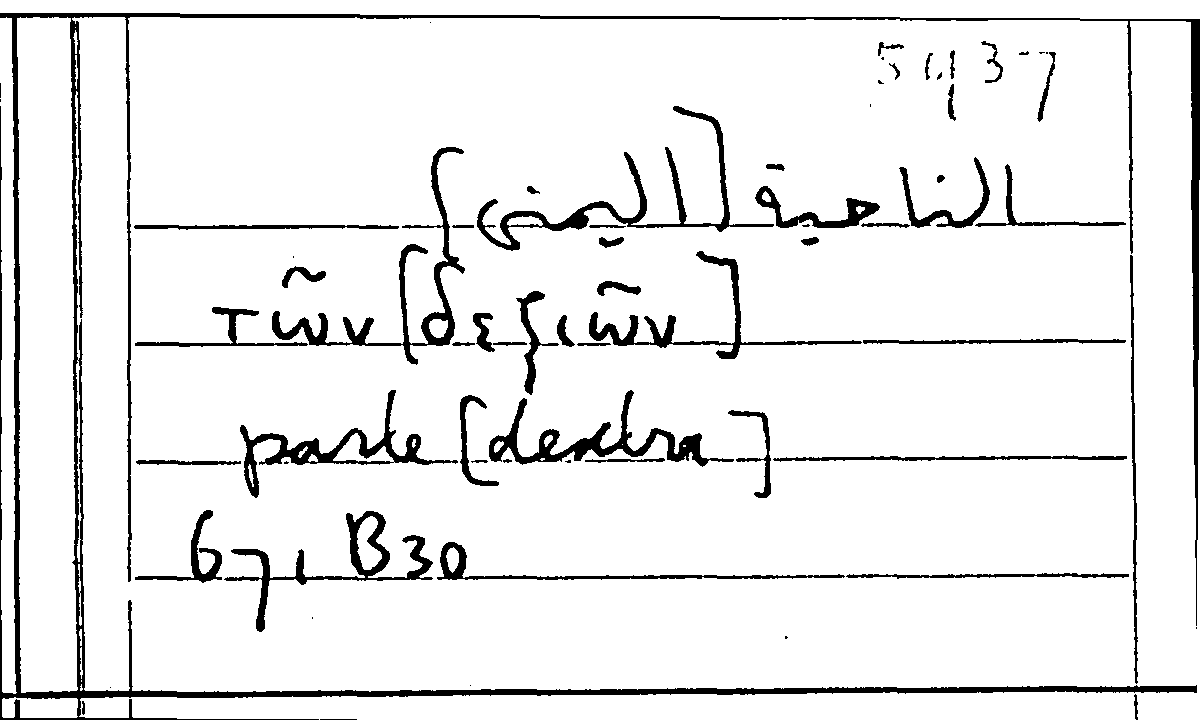 5437
الناحية [اليمنى]
τῶν [δεξιῶν]
parte [dextra]
671 B30